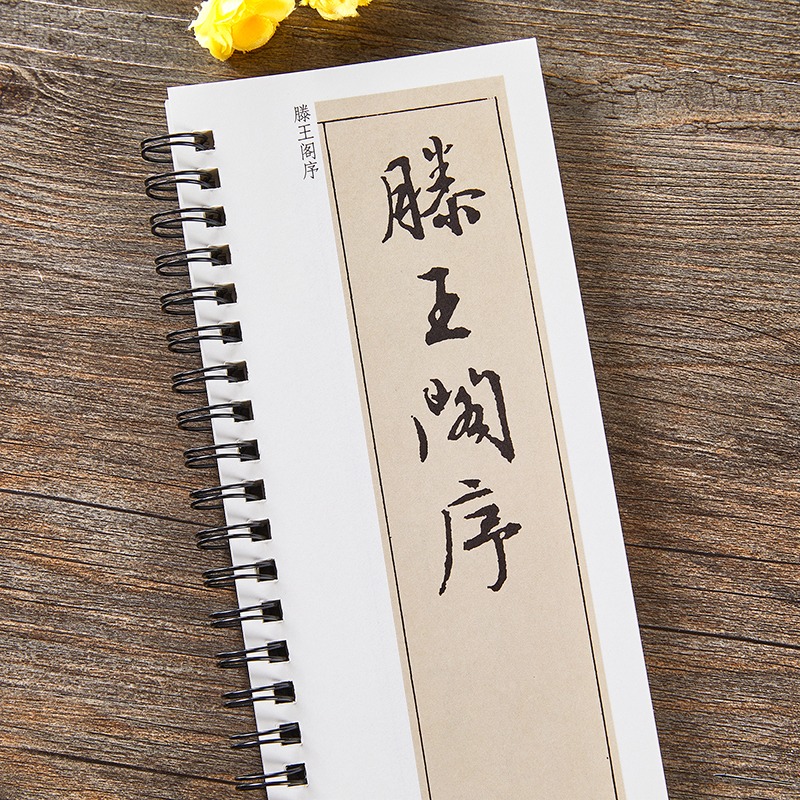 滕王阁序
滕王阁序